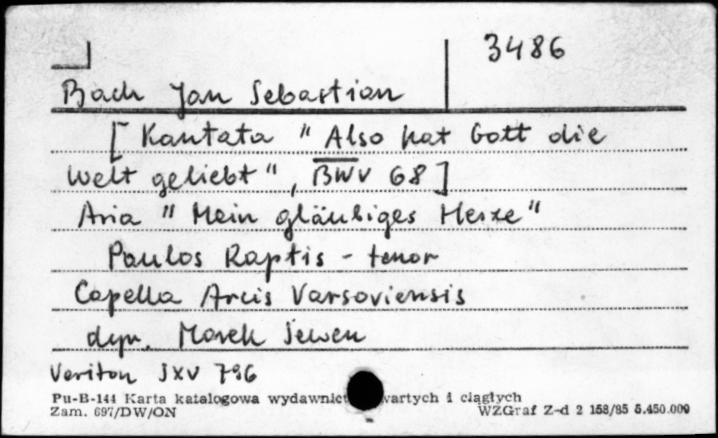 3486
Bach Jan Sebastian
[Kantata "Also hat Gott die
Welt geliebt", BWV 68]
Aria "Mein gläubiges Herze"
Paulos Raptis - tenor
Capella Arcis Varsoviensis
dyr. Marek Sewen
Veriton SXV 796
Pu-B-144 Karta katalogowa wydawnict wartych i ciągłych
Zam. 697/DW/ON WZGraf Z-d 2 158/85 5.450.000